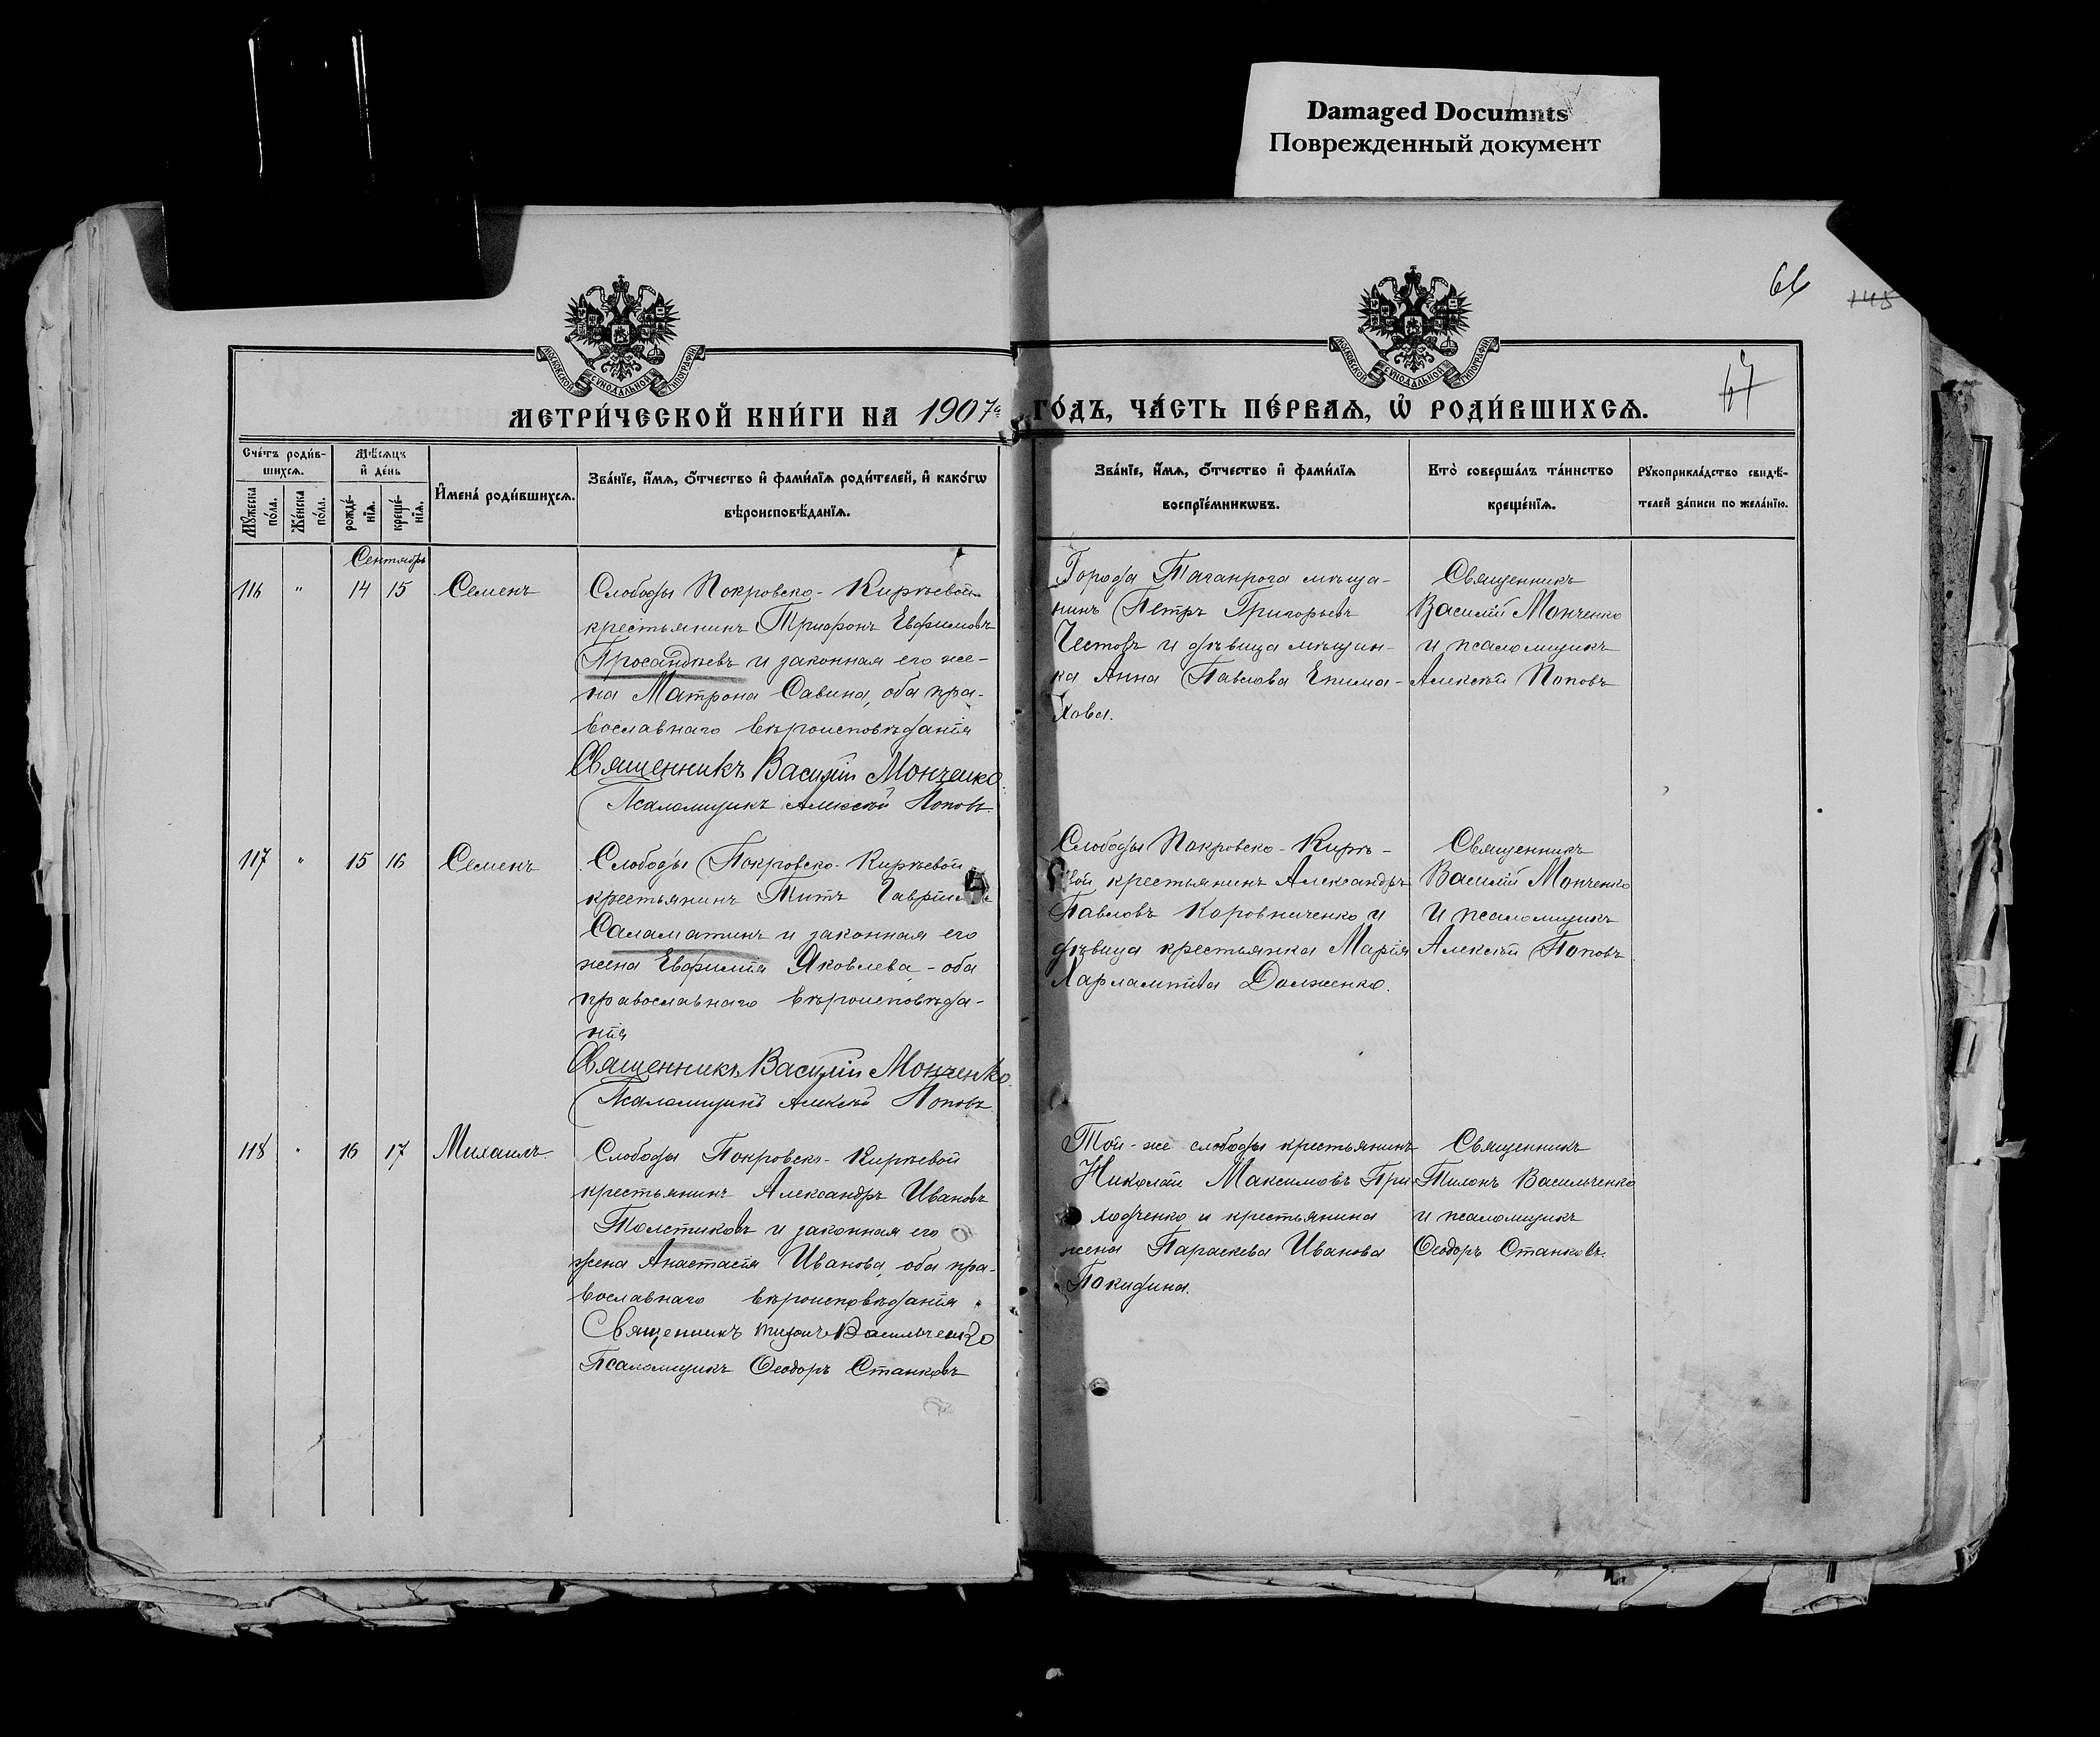 Damaged Documnts
Поврежденный документ
66
145
67
МОСКОВСКОЙ СѴНОДАЛЬНОЙ ТИПОГРАФІИ
МОСКОВСКОЙ СѴНОДАЛЬНОЙ ТИПОГРАФІИ
МЕТРИ́ЧЕСКОЙ КНИ́ГИ НА 1907й ГО́ДЪ, ЧА́СТЬ ПЕ́РВАѦ, Ѡ҆ РОДИ́ВШИХСѦ.
Сче́тъ роди́в-
шихсѧ.
Мѣ́сѧцъ
и҆ де́нь
Мꙋ́жеска
по́ла.
Же́нска
по́ла.
рожде́-
нїѧ.
креще́-
нїѧ.
И҆мена̀ роди́вшихсѧ.
Зва́нїе, и҆́мѧ, ѻ҆́тчество и҆ фами́лїѧ роди́телей, и҆ како́гѡ
вѣроисповѣ́данїѧ.
Зва́нїе, и҆́мѧ, ѻ҆́тчество и҆ фами́лїѧ
воспрїе́мникѡвъ.
Кто̀ соверша́лъ та́инство
креще́нїѧ.
Рꙋкоприкла́дство свидѣ́-
телей за́писи по жела́нїю.
Сентябрь
116 " 14 15 Семенъ
Слободы Покровско-Кирѣевой
крестьянинъ Трифонъ Евфимовъ
и законная его же-
на Матрона Савина, оба пра-
вославнаго вѣроисповѣданія
Священникъ Василій Монченко
Псаломщикъ Алексѣй Поповъ
Города Таганрога мѣща-
нинъ Петръ Григорьевъ
Честовъ и дѣвица мѣщан-
ка Анна Павлова Епима-
хова.
Священникъ
Василій Монченко
и псаломщикъ
Алексѣй Поповъ
117 " 15 16 Семенъ
Слободы Покровско-Кирѣевой
крестьянинъ Титъ
Саламатинъ и законная его
жена Евфимія Яковлева, - оба
православнаго вѣроисповѣда-
нія
Священникъ Василій Монченко.
Псаломщикъ Алексѣй Поповъ
Слободы Покровско-Кирѣ-
вой крестьянинъ Александръ
Павловъ Коровниченко и
дѣвица крестьянка Марія
Харлампіева Долженко.
Священникъ
Василій Монченко
и псаломщикъ
Алексѣй Поповъ
118 " 16 17 Михаилъ
Слободы Покровско-Кирѣевой
крестьянинъ Александръ Ивановъ
Толстиковъ и законная его
жена Анастасія Иванова, оба пра-
вославнаго вѣроисповѣданія
Священникъ Тихонъ Васильченко
Псаломщикъ Ѳеодоръ Станковъ
Той-же слободы крестьянинъ
Николай Максимовъ При-
ходченко и крестьянина
жена Параскева Иванова
Покидина.
Священникъ
Тихонъ Васильченко
и псаломщикъ
Ѳеодоръ Станковъ.